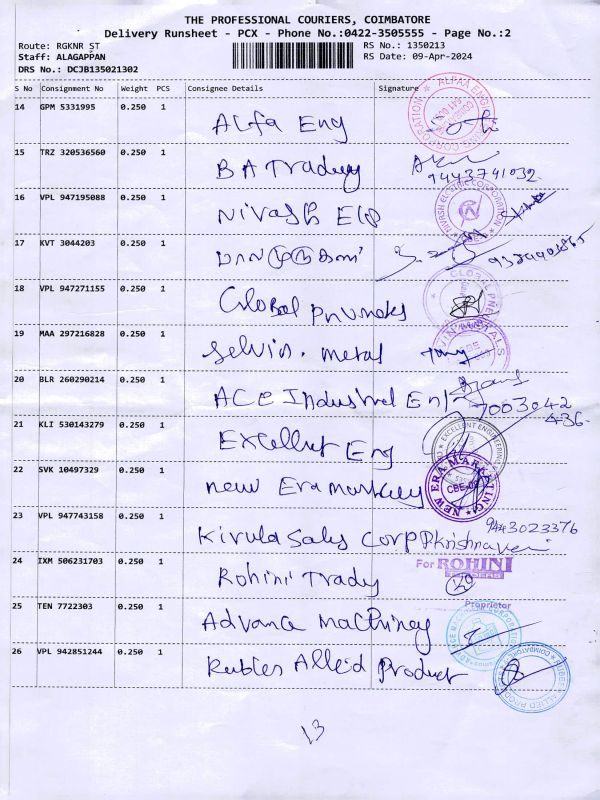 THE PROFESSIONAL COURIERS, COIMBATORE
Delivery Runsheet - PCX - Phone No.:0422-3505555 - Page No.:2
Route: RGKNR ST RS No.: 1350213
Staff: ALAGAPPAN RS Date: 09-Apr-2024
DRS No.: DCJB135021302
S No Consignment No Weight PCS Consignee Details Signature
14 GPM 5331995 0.250 1 Alfa Eng
15 TRZ 320536560 0.250 1 BA Trading
9443741032
16 VPL 947195088 0.250 1 Nivash Elp
17 KVT 3044203 0.250 1
18 VPL 947271155 0.250 1 Global Pnumates
19 MAA 297216828 0.250 1 Selvin. metal
20 BLR 260290214 0.250 1 ACE Industrial Eng
7003042
436
21 KLI 530143279 0.250 1 Excellent Eng
EXCELLENT ENGINEERING
22 SVK 10497329 0.250 1 New Era marketing
NEW ERA MARKETING
CBE
23 VPL 947743158 0.250 1 Kirula Sales Corp P.Krishnaveni
9443023376
24 IXM 506231703 0.250 1 Rohini Trady
For ROHINI TRADERS
Proprietor
25 TEN 7722303 0.250 1 Advance Machiney
26 VPL 942851244 0.250 1 Rubles Allied Product
13